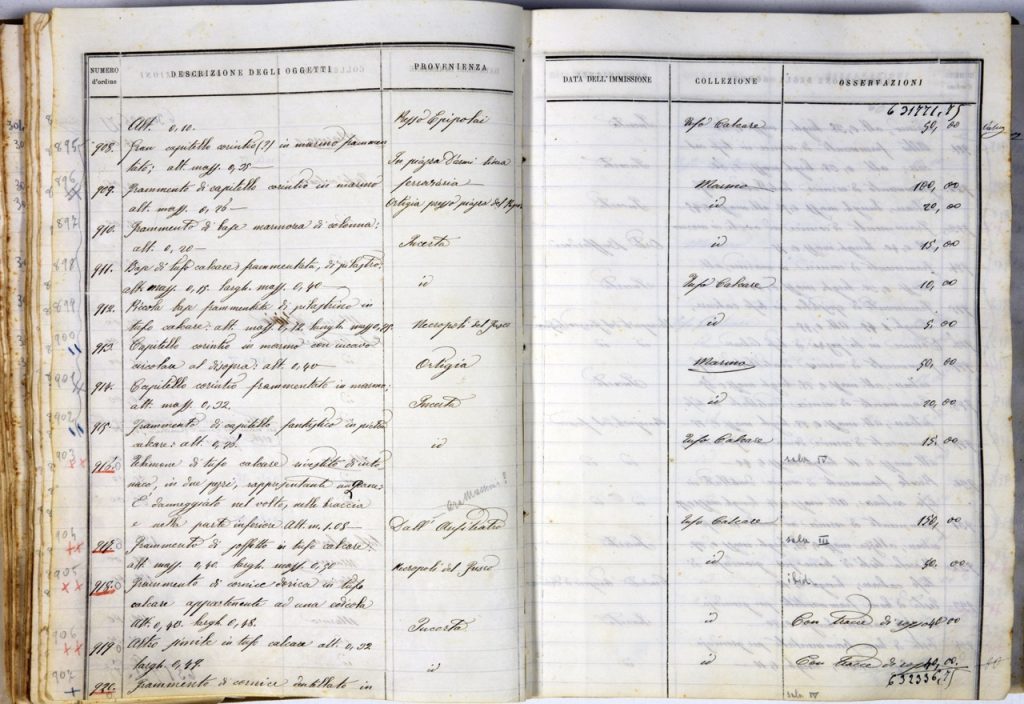 NUMERO d'ordine
DESCRIZIONE DEGLI OGGETTI
PROVENIENZA
DATA DELL'IMMISSIONE
COLLEZIONE
OSSERVAZIONI
631771,75
Alt. 0,10.
Presso Epipolai
Tufo Calcare
50,00
895
908.
Gran capitello corintio (?) in marmo frammen
tato; alt. mass. 0,35
In piazza d'armi
896
909.
Frammento di capitello corintio in marmo
ferraria
Marmo
100,00
alt. mass. 0,26 —
Ortigia presso piazza del
id
20,00
897
910.
Frammento di base marmorea di colonna:
alt. 0,20 —
Incerta
id
15,00
898
911.
Base di tufo calcare frammentata, di pilastro:
alt. mass. 0,15. largh. mass. 0,40
id
Tufo Calcare
10,00
899
912.
Piccola base frammentata di pilastrino in
tufo calcare: alt. mass. 0,12 largh. mass. 0,
Necropoli del Fusco
id
5,00
900
913
Capitello corintio in marmo con incavo
circolare al disopra: alt. 0,40
Ortigia
Marmo
50,00
901
914.
Capitello corintio frammentato in marmo;
alt. mass. 0,32.
Incerta
id
20,00
902
915.
Frammento di capitello fantastico in pietra
calcare: alt. 0,
id
Tufo Calcare
15,00
903
916.
Telamone di tufo calcare rivestito di into
sala IV
naco, in due pezzi, rappresentante un
E' danneggiato nel volto, nelle braccia
e nella parte inferiore. Alt. m. 1.08 —
Dall' Anfiteatro
Tufo Calcare
150,00
904
917.
Frammento di soffitto in tufo calcare:
sala III
alt. mass. 0,40. largh. mass. 0,50
Necropoli del Fusco
id
30,00
905
918.
Frammento di cornice dorica in tufo
ibid.
calcare appartenente ad una edicola
Alt. 0,40. largh. 0,48.
Incerta
id
Con tracce di rosso 40 00
906
919
Altro simile in tufo calcare alt. 0,32
largh. 0,49.
id
id
Con tracce di rosso 40,00.
632336,75
907
920.
Frammento di cornice dentellato in
sala IV